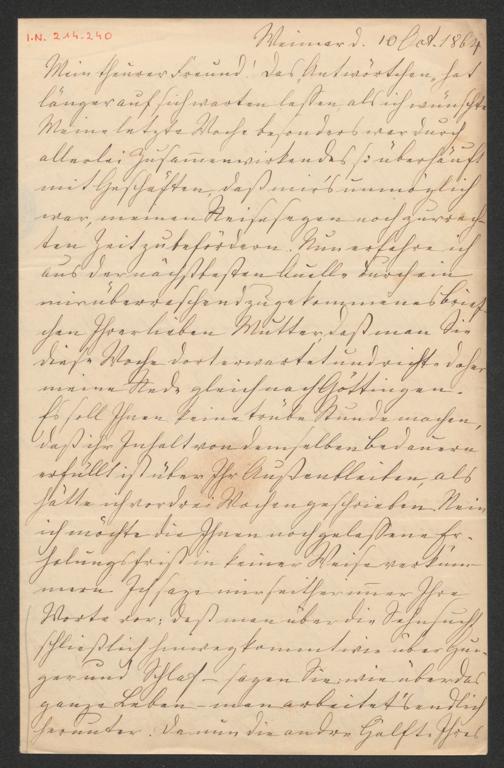 I.N. 214.240
Weimar d. 10 Oct. 1864
Mein theurer Freund! Das Antwörtchen, hat
länger auf sich warten lassen als ich wünschte
Meine letzte Woche besonders war durch
allerlei Zusammenwirkendes so überhäuft
mit Geschäften, daß mir's unmöglich
war, meinen Reisesegen noch zur rech-
ten Zeit zu befördern. Nun erfahre ich
aus der nächstbesten Quelle durch ein
mir überraschend zugekommenes Brief-
chen Ihrer lieben Mutter, daß man Sie
diese Woche dort erwartet und richte daher
meine Rede gleich nach Göttingen.
Es soll Ihnen keine trübe Stunde machen,
daß ihr Inhalt von demselben Bedauern
erfüllt ist über Ihr Außenbleiben, als
hätte ich vor drei Wochen geschrieben. Nein
ich möchte die Ihnen noch gelassene Er-
holungsfrist in keiner Weise verküm-
mern. Ich sage mir seither immer Ihre
Worte vor: daß man über die Sehnsucht
schließlich hinwegkommt wie über Hun-
ger und Schlaf – sagen Sie: wie über das
ganze Leben – man arbeitet's endlich
herunter. Da nun die andre Hälfte Ihres